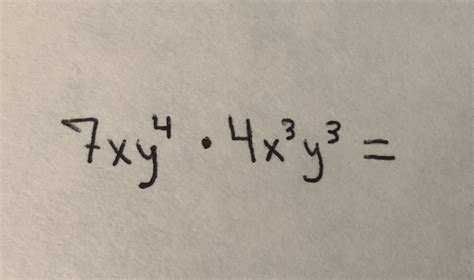 7xy⁴ · 4x³y³ =